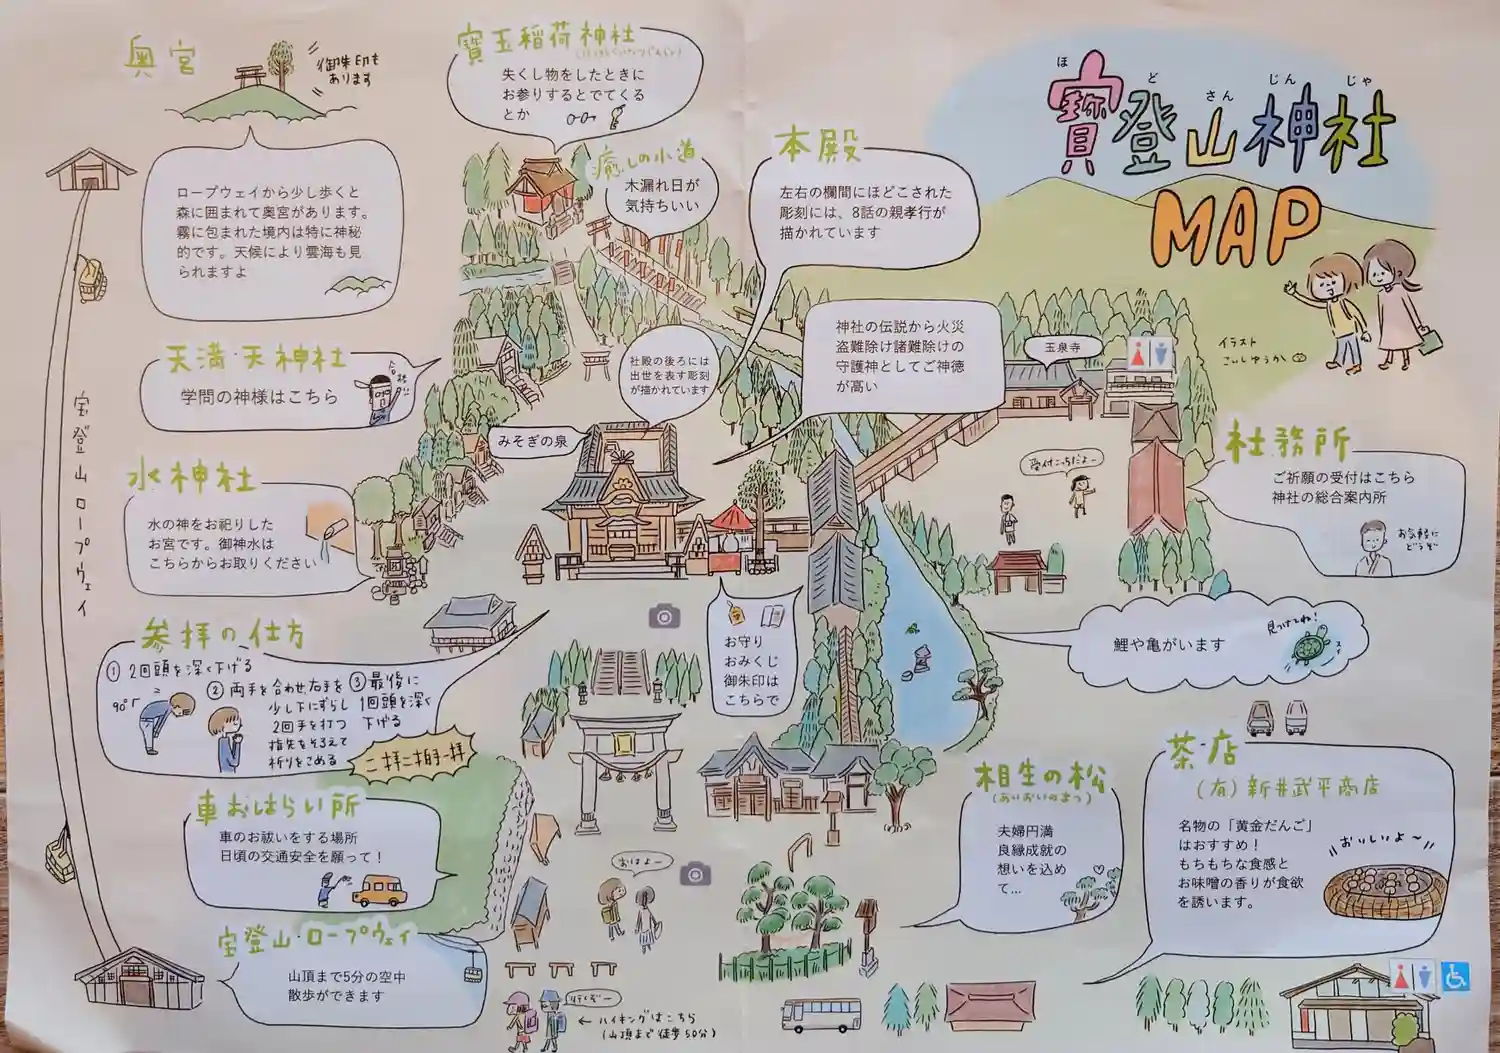 ほ ど さん じん じゃ
寶登山神社
MAP
イラスト
こいしゆうか
奥宮
御朱印も
あります
ロープウェイから少し歩くと
森に囲まれて奥宮があります。
霧に包まれた境内は特に神秘
的です。天候により雲海も見
られますよ
寶玉稲荷神社
失くし物をしたときに
お参りするとでてくる
とか
癒しの小道
木漏れ日が
気持ちいい
本殿
左右の欄間にほどこされた
彫刻には、8話の親孝行が
描かれています
天満・天神社
学問の神様はこちら
合格!!
社殿の後ろには
出世を表す彫刻
が描かれています
神社の伝説から火災
盗難除け諸難除けの
守護神としてご神徳
が高い
玉泉寺
みそぎの泉
受付こっちだよー
社務所
ご祈願の受付はこちら
神社の総合案内所
お気軽に
どうぞ
水神社
水の神をお祀りした
お宮です。御神水は
こちらからお取りください
宝登山ロープウェイ
参拝の仕方
① 2回頭を深く下げる
90°
② 両手を合わせ右手を
少し下にずらし
2回手を打つ
指先をそろえて
祈りをこめる
③ 最後に
1回頭を深く
下げる
二拝二拍手一拝
お守り
おみくじ
御朱印は
こちらで
鯉や亀がいます
見つけてね!
スイ
車おはらい所
車のお祓いをする場所
日頃の交通安全を願って!
おはよー
相生の松
(あいおいのまつ)
夫婦円満
良縁成就の
想いを込め
て…
茶店
(有)新井武平商店
名物の「黄金だんご」
はおすすめ!
もちもちな食感と
お味噌の香りが食欲
を誘います。
おいしいよ〜
宝登山・ロープウェイ
山頂まで5分の空中
散歩ができます
行くぞー
← ハイキングはこちら
(山頂まで徒歩50分)